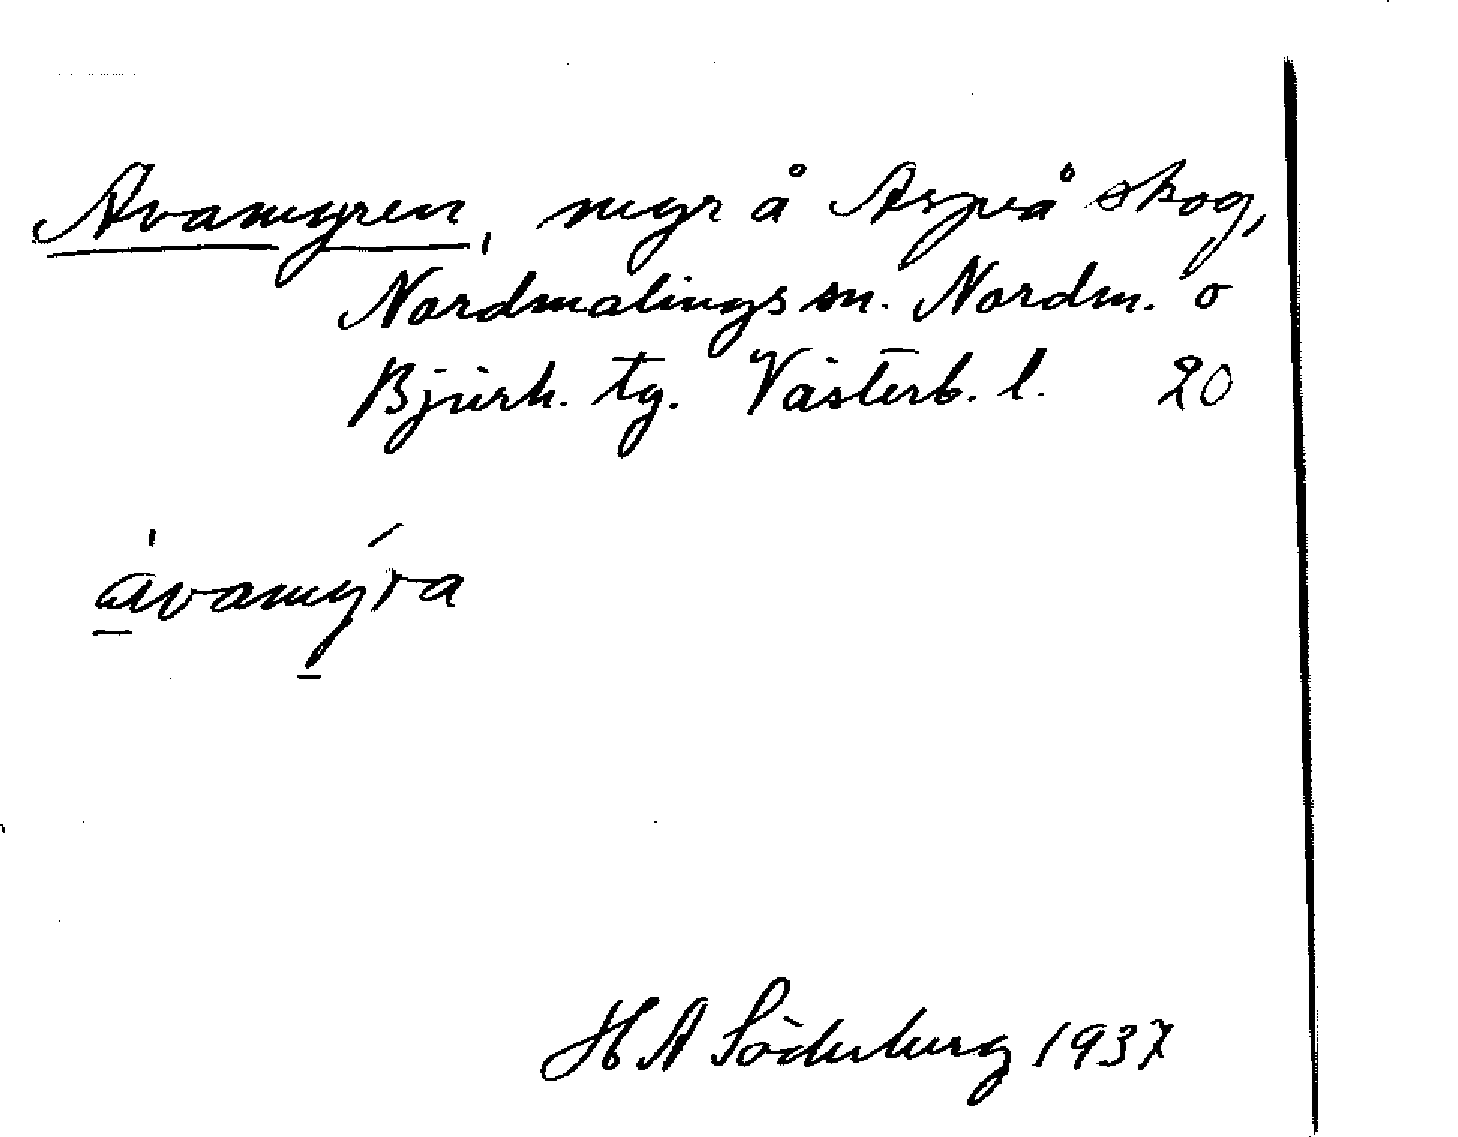 Avamyren, myr å Aspeå skog,
Nordmalings sn. Nordm. o
Bjurh. tg. Västerb. l. 20
ávamýra
H A Söderberg 1937